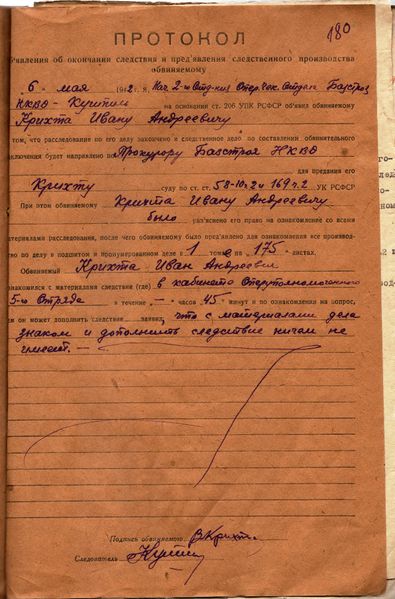 180
ПРОТОКОЛ
объявления об окончании следствия и пред'явления следственного производства
обвиняемому
6 мая 1942 г. я, Нач. 2-го Отд-ния Опер.Чек.Отдела Бакстроя
НКВД - на основании ст. 206 УПК РСФСР об'явил обвиняемому
Крихта Ивану Андреевичу
том, что расследование по его делу закончено и следственное дело по составлении обвинительного
заключения будет направлено по Прокурору НКВД
для предания его
Крихту суду по ст. ст. 58-10 ч 2 и 169 ч. 2 УК РСФСР
При этом обвиняемому Крихта Ивану Андреевичу
было раз'яснено его право на ознакомление со всеми
материалами расследования, после чего обвиняемому было предъявлено для ознакомления все производ-
ство по делу в подшитом и пронумерованном деле в 1 томе на 175 листах.
Обвиняемый Крихта Иван Андреевич
ознакомился с материалами следствия (где) в кабинете Оперуполномоченного
5-го Отряда в течение - часов 45 минут и по ознакомлении на вопрос,
чем он может дополнить следствие заявил, что с материалами дела
знаком и дополнить следствие ничем не
имеет. -
Подпись обвиняемого В Крихт
Следователь